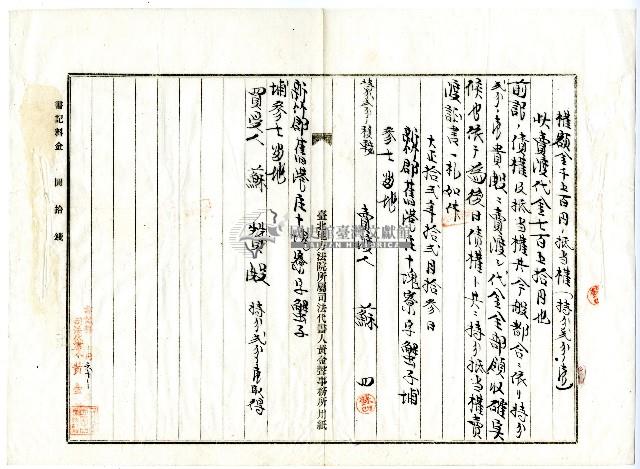 權額金千五百円ノ抵当權(持分貳分ノ壱)
此賣渡代金七百五拾円也
前記ノ債權及抵当權共今般都合ニ依リ持分
貳分ノ壱貴殿ニ賣渡シ代金全部領収確実
候也依テ為後日債權ト共ニ持分抵当權賣
渡証書一札如件
大正拾貳年拾貳月拾参日
新竹郡舊港庄十塊寮字蟹子埔
参七番地
賣渡人 蘇 四
臺北地方法院所屬司法代書人黃金聲事務所用紙
新竹郡舊港庄十塊寮字蟹子
埔参七番地
買受人 蘇 殿
持分貳分ノ壱取得
書記料金 圓拾錢
國史館臺灣文獻館
TAIWAN HISTORICA